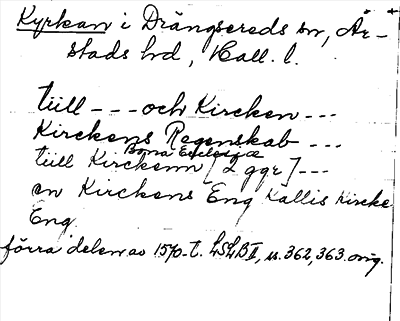 Kyrkan i Drängsereds sn, År-
stads hd, Hall. l.
tüll --- och Kircken ---
Kirckens Regenskab ---
Bona Ecclesiæ
tüll Kirckenn [2 ggr] ---
en Kirckens Eng Kallis Kircke
Eng
förra delen av 1570-t. LSLB II, s. 362, 363. orig.